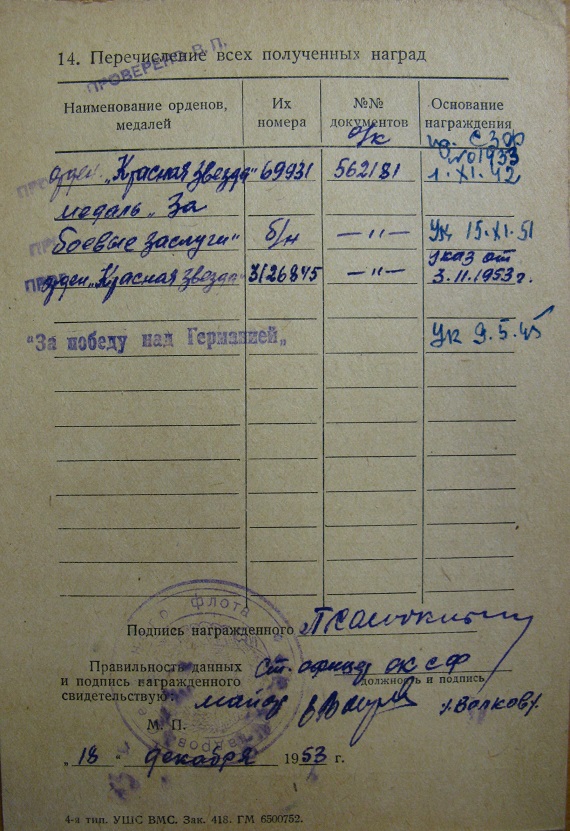 14. Перечисление всех полученных наград
ПРОВЕРЕНО В. П.
Наименование орденов, медалей
Их номера
№№ документов
Основание награждения
о/к
СЗФ
орден „Красная Звезда“ 69931 562181 1.XI.42
медаль „За
боевые заслуги“ б/н —〃— Ук 15.XI.51
указ от
орден „Красная Звезда“ 3126845 —〃— 3.11.1953 г.
"За победу над Германией„ Ук 9.5.45
флота
Подпись награжденного
Правильность данных
и подпись награжденного
свидетельствую:
ст. офицер ОК СФ
должность и подпись
майор /Волков/.
М. П.
„ 18 " декабря 1953 г.
4-я тип. УШС ВМС. Зак. 418. ГМ 6500752.